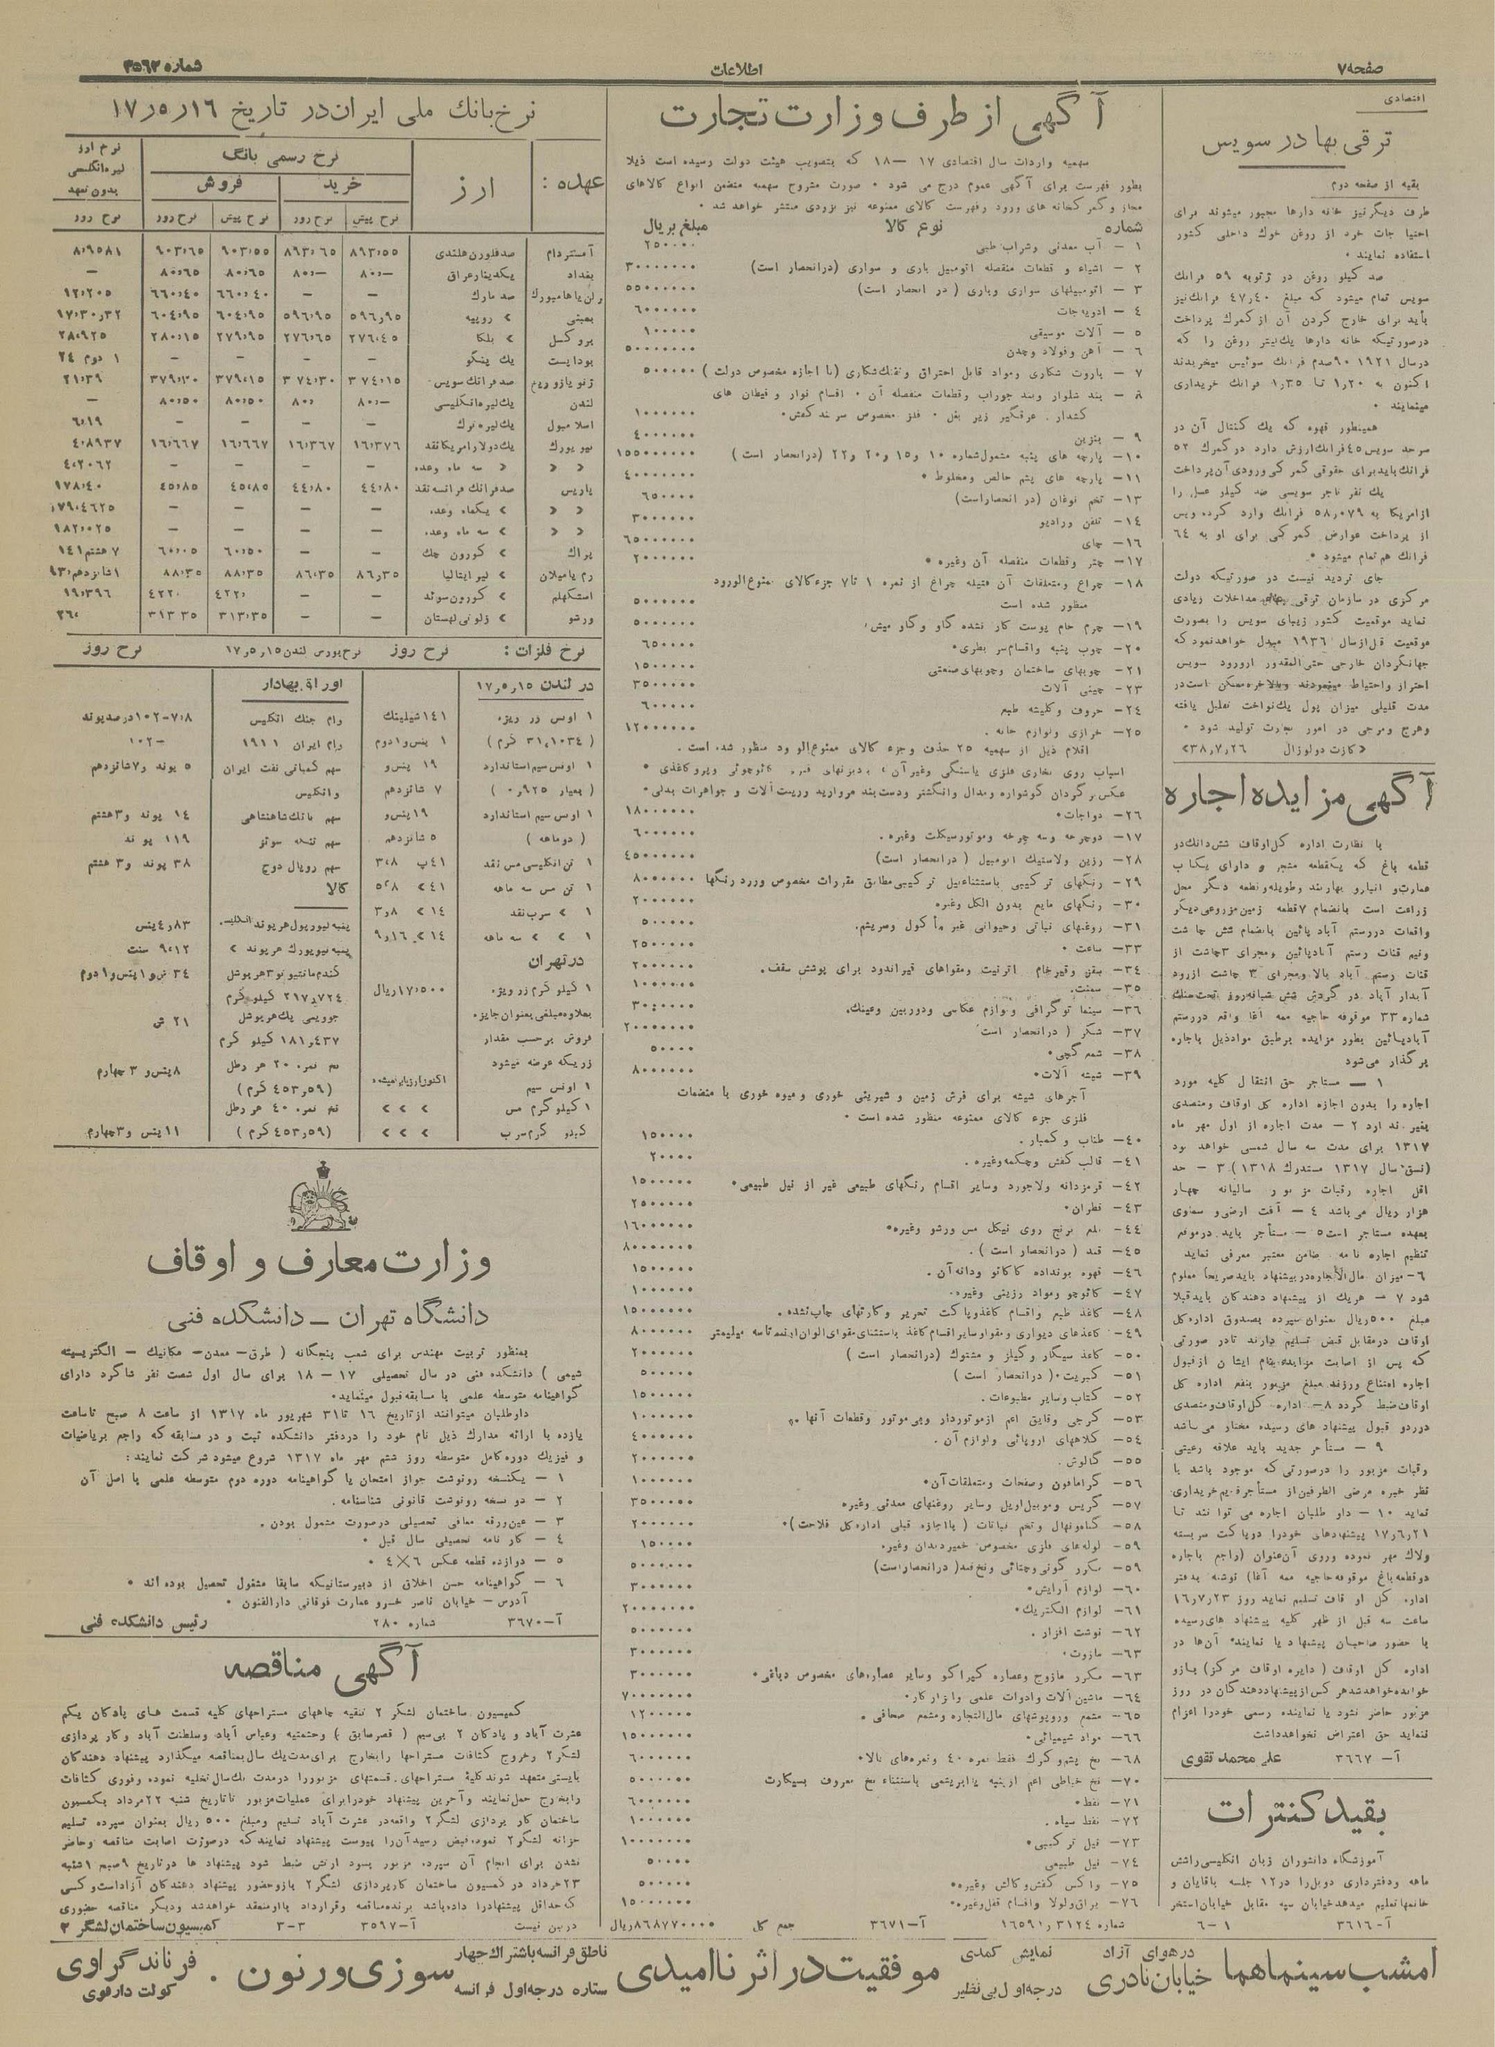 صفحه ۷
اطلاعات
شماره ۳۵۶۲
اقتصادی
ترقی بها در سویس
بقیه از صفحه دوم
طرف دیگر نیز خانه دارها مجبور میشوند برای
احتیاجات خرد از روغن خوك داخلی کشور
استفاده نمایند •
صد کیلو روغن در ژنو به ۵۹ فرانك
سویس تمام میشود که مبلغ ۴۷،۴۰ فرانك نیز
باید برای خارج کردن آن از کمرك پرداخت
درصورتیکه خانه دارها یك لیتر روغن را که
در سال ۱۹۲۱ ۹۰ صدم فرانك سوئیس میخریدند
اکنون به ۱،۲۰ تا ۱،۳۵ فرانك خریداری
مینمایند •
همینطور قهوه که یك کنتال آن در
سرحد سویس ۴۵ فرانك ارزش دارد در گمرك ۵۲
فرانك باید برای حقوق گمرکی ورودی آن پرداخت
یك نفر تاجر سویسی صد کیلو عسل را
از امریکا به ۵۸،۰۷۹ فرانك وارد کرده و پس
از پرداخت عوارض گمرکی برای او به ۶۴
فرانك هم تمام میشود •
جای تردید نیست در صورتیکه دولت
مرکزی در سازمان ترقی بهای مداخلات زیادی
ننماید موقعیت کشور زیبای سویس را بصورت
موقعیت قبل از سال ۱۹۳۶ مبدل خواهد نمود که
جهانگردان خارجی حتی المقدور از ورود سویس
احتراز و احتیاط مینمودند و بالاخره ممکن است در
مدت قلیلی میزان پول یك نواخت تقلیل یافته
و هرج و مرجی در امور تجارت تولید شود •
«گازت دولوزان ۳۸،۷،۲۶»
آگهی مزایده اجاره
با نظارت اداره کل اوقاف شش دانك دو
قطعه باغ که یکقطعه مشجر و دارای یکباب
عمارت و انبار و بهاربند و طویله و قطعه دیگر محل
زراعت است بانضمام ۷ قطعه زمین مزروعی دیگر
واقعات در رستم آباد پائین بانضمام شش چاشت
ونیم قنات رستم آباد پائین ومجرای ۳ چاشت از
قنات رستم آباد بالا ومجرای ۳ چاشت از رود
آبدار آباد در گردش شش شبانه روز تحت پلاك
شماره ۳۳ موقوفه حاجیه ممه آغا واقع در رستم
آباد پائین بطور مزایده برطبق مواد ذیل باجاره
برگذار می شود
۱ — مستاجر حق انتقال کلیه مورد
اجاره را بدون اجازه اداره کل اوقاف ومتصدی
بغیر ندارد ۲ – مدت اجاره از اول مهر ماه
۱۳۱۷ برای مدت سه سال شمسی خواهد بود
(نسق سال ۱۳۱۷ مستدرك ۱۳۱۸) ۳ – حد
اقل اجاره رقبات مزبور و سالیانه چهار
هزار ریال می باشد ۴ – آفت ارضی و سماوی
بعهده مستاجر است ۵ – مستأجر باید در موقع
تنظیم اجاره نامه ضامن معتبر معرفی نماید
۶ – میزان مال الاجاره در پیشنهاد باید صریحا معلوم
شود ۷ – هر یك از پیشنهاد دهندگان باید قبلا
مبلغ ۵۰۰ ریال بعنوان سپرده بصندوق اداره کل
اوقاف در مقابل قبض تسلیم دارند تا در صورتی
که پس از اصابت مزایده بنام ایشان از قبول
اجاره امتناع ورزند مبلغ مزبور بنفع اداره کل
اوقاف ضبط گردد ۸ – اداره کل اوقاف ومتصدی
در رد و قبول پیشنهاد های رسیده مختار می باشد
۹ – مستأجر جدید باید علاقه رعیتی
رقبات مزبور را در صورتی که موجود باشد با
نظر خبره مرضی الطرفین از مستأجر قدیم خریداری
نماید ۱۰ – داو طلبان اجاره می توانند تا
۱۷٫۶٫۲۱ پیشنهادهای خود را در پاکت سر بسته
ولاك مهر نموده و روی آن عنوان (راجع باجاره
دو قطعه باغ موقوفه حاجیه ممه آغا) نوشته بدفتر
اداره کل اوقاف تسلیم نماید روز ۱۶٫۷٫۲۳
ساعت سه قبل از ظهر کلیه پیشنهاد های رسیده
با حضور صاحبان پیشنهاد یا نماینده آن ها در
اداره کل اوقاف ( دایره اوقاف مرکز) باز و
خوانده خواهد شد هر کس از پیشنهاد دهندگان در روز
مزبور حاضر نشود یا نماینده رسمی خود را اعزام
ننماید حق اعتراض نخواهد داشت
آ– ۳۶۶۷ علی محمد تقوی
بقید کنترات
آموزشگاه دانشوران زبان انگلیسی را شش
ماهه و دفترداری دوبل را در ۱۲ جلسه باقایان و
خانمها تعلیم میدهد خیابان سپه مقابل خیابان استخر
آ– ۳۶۱۶ ۱–۶
آگهی از طرف وزارت تجارت
سهمیه واردات سال اقتصادی ۱۷ – ۱۸ که بتصویب هیئت دولت رسیده است ذیلا
بطور فهرست برای آگهی عموم درج می شود • صورت مشروح سهمیه متضمن انواع کالاهای
مجاز و گمرکخانه های ورود و فهرست کالای ممنوعه نیز بزودی منتشر خواهد شد •
شماره نوع کالا مبلغ بریال
۱ – آب معدنی وشراب طبی ۲۵۰۰۰۰
۲ – اشیاء و قطعات منفصله اتومبیل باری و سواری (در انحصار است) ۳۰۰۰۰۰۰۰
۳ – اتومبیلهای سواری وباری ( در انحصار است) ۵۵۰۰۰۰۰۰
۴ – ادویه جات ۶۰۰۰۰۰۰
۵ – آلات موسیقی ۱۰۰۰۰۰
۶ – آهن وفولاد وچدن ۵۰۰۰۰۰۰۰
۷ – باروت شکاری ومواد قابل احتراق وتفنك شکاری (با اجازه مخصوص دولت ) ۵۰۰۰۰۰
۸ – بند شلوار وبند جوراب وقطعات منفصله آن • اقسام نوار و قیطان های
کشدار. عرقگیر زیر بغل • فلز مخصوص سر بند کفش • ۱۰۰۰۰۰۰
۹ – بنزین ۴۰۰۰۰۰۰
۱۰– پارچه های پنبه مشمول شماره ۱۰ و ۱۵ و ۲۰ و ۲۲ (در انحصار است ) ۱۵۵۰۰۰۰۰۰
۱۱– پارچه های پشم خالص ومخلوط • ۴۰۰۰۰۰۰۰
۱۳– تخم نوغان (در انحصار است) ۶۵۰۰۰۰۰
۱۴– تلفن ورادیو ۳۰۰۰۰۰۰
۱۶– چای ۶۵۰۰۰۰۰۰
۱۷– چتر وقطعات منفصله آن وغیره • ۲۰۰۰۰۰۰
۱۸– چراغ ومتعلقات آن فتیله چراغ از نمره ۱ تا ۷ جزء کالای ممنوع الورود
منظور شده است ۵۰۰۰۰۰۰
۱۹– چرم خام پوست کار نشده گاو و گاو میش. ۵۰۰۰۰۰۰
۲۰– چوب پنبه واقسام سر بطری • ۶۵۰۰۰۰
۲۱– چوبهای ساختمان وچوبهای صنعتی ۱۵۰۰۰۰۰
۲۳– چینی آلات ۳۵۰۰۰۰۰
۲۴– حروف وکلیشه طبع ۶۰۰۰۰۰
۲۵– خرازی ولوازم خانه . ۱۲۰۰۰۰۰۰
اقلام ذیل از سهمیه ۲۵ حذف وجزء کالای ممنوع الورود منظور شده است.
۲۶– دواجات • ۱۸۰۰۰۰۰۰
۱۷– دوچرخه وسه چرخه وموتورسیکلت وغیره. ۶۰۰۰۰۰۰
۲۸– رزین ولاستیك اتومبیل ( در انحصار است) ۴۵۰۰۰۰۰۰
۲۹– رنگهای ترکیبی باستثناء نیل ترکیبی مطابق مقررات مخصوص ورود رنگها ۸۰۰۰۰۰۰
۳۰– رنگهای مایع بدون الکل وغیره ۲۰۰۰۰۰۰
۳۱– روغنهای نباتی وحیوانی غیر مأکول وسریشم. ۵۰۰۰۰۰۰
۳۳– ساعت • ۲۵۰۰۰۰۰
۳۴– سفن و قیر خام اترنیت ومقواهای قیراندود برای پوشش سقف. ۲۰۰۰۰۰۰
۳۵– سمنت. ۱۰۰۰۰۰۰۰
۳۶– سینما توگرافی ولوازم عکاسی و دوربین وعینك. ۳۰۰۰۰۰۰
۳۷– شکر ( در انحصار است ) ۲۰۰۰۰۰۰۰
۳۸– شمع گچی • ۵۰۰۰۰
۳۹– شیشه آلات • ۸۰۰۰۰۰۰
آجرهای شیشه برای فرش زمین و شیرینی خوری و میوه خوری با متضمات
فلزی جزء کالای ممنوعه منظور شده است •
۴۰– طناب و کمبار. ۱۵۰۰۰۰
۴۱– قالب کفش وچکمه وغیره . ۲۰۰۰۰
۴۲– قرمزدانه ولاجورد وسایر اقسام رنگهای طبیعی غیر از نیل طبیعی • ۱۵۰۰۰۰۰
۴۳– قطران • ۲۵۰۰۰۰
۴۴– قلع برنج روی نیکل مس ورشو وغیره • ۱۶۰۰۰۰۰۰
۴۵– قند ( در انحصار است ) . ۸۰۰۰۰۰۰۰
۴۶– قهوه بونداده کاکائو ودانه آن. ۱۵۰۰۰۰۰
۴۷– کائوچو ومواد رزینی وغیره. ۱۰۰۰۰۰۰
۴۸– کاغذ طبع واقسام کاغذ وپاکت تحریر وکارتهای چاپ نشده. ۱۵۰۰۰۰۰۰
۴۹– کاغذهای دیواری ومقوا وسایر اقسام کاغذ باستثنای مقوای الوان از نیم تا سه میلیمتر ۸۰۰۰۰۰۰
۵۰– کاغذ سیگار وکپلز و مشتوك (در انحصار است ) ۲۰۰۰۰۰۰
۵۱– کبریت • ( در انحصار است ) ۵۰۰۰۰۰
۵۲– کتاب وسایر مطبوعات. ۱۵۰۰۰۰۰
۵۳– کرجی وقایق اعم از موتوردار وبی موتور وقطعات آنها • ۱۰۰۰۰۰۰
۵۴– کلاههای اروپائی ولوازم آن. ۴۰۰۰۰۰۰
۵۵– گالوش. ۲۰۰۰۰۰۰
۵۶– گرامافون وصفحات ومتعلقات آن • ۱۰۰۰۰۰۰
۵۷– گریس و موبیل اویل وسایر روغنهای معدنی وغیره ۳۵۰۰۰۰۰
۵۸– گیاه ونهال وتخم نباتات ( با اجازه قبلی اداره کل فلاحت ) • ۲۰۰۰۰۰
۵۹– لوله های فلزی مخصوص خمیردندان وغیره. ۱۵۰۰۰۰
۵۹– مکرر گونی وچتائی ونخ قند ( در انحصار است) ۵۰۰۰۰۰۰
۶۰– لوازم آرایش • ۳۰۰۰۰۰۰
۶۱– لوازم الکتریك • ۲۰۰۰۰۰۰۰
۶۲– نوشت افزار . ۵۰۰۰۰۰۰
۶۳– مازوت • ۳۰۰۰۰۰۰
۶۳– مکرر مازوج وعصاره کبراکو وسایر عصاره های مخصوص دباغی • ۳۰۰۰۰۰۰
۶۴– ماشین آلات وادوات علمی وابزار کار • ۷۰۰۰۰۰۰۰
۶۵– مشمع وروپوشهای مال التجاره ومشمع صحافی . ۱۲۰۰۰۰۰
۶۶– مواد شیمیائی • ۱۵۰۰۰۰۰۰
۶۸– نخ پشم وکرك فقط نمره ۴۰ ونمره های بالا • ۶۰۰۰۰۰۰
۷۰– نخ خیاطی اعم از پنبه یا ابریشمی باستثناء نخ معروف بسیکارت ۵۰۰۰۰۰۰
۷۱– نفط • ۶۰۰۰۰۰۰
۷۲– نفط سیاه . ۱۰۰۰۰۰۰
۷۳– نیل ترکیبی • ۱۰۰۰۰۰۰۰
۷۴– نیل طبیعی ۵۰۰۰۰
۷۵– واکس کفش وکالش وغیره • ۵۰۰۰۰۰
۷۶– یراق ولولا واقسام قفل وغیره • ۱۵۰۰۰۰۰۰
شماره ۳۱۲۴ ر ۱۶۵۹۱ آ– ۳۶۷۱ جمع کل ۸۶۸۷۷۰۰۰۰ ریال
نرخ بانك ملی ایران در تاریخ ۱۶ر۵ر۱۷
عهده : ارز نرخ رسمی بانگ
خرید فروش
نرخ پیش نرخ روز نرخ پیش نرخ روز نرخ روز
آمستردام صد فلورن هلندی ۸۹۳،۵۵ ۸۹۳،۶۵ ۹۰۳،۵۵ ۹۰۳،۶۵ ۸،۹۵۸۱
بغداد یکدینار عراق ۸۰،– ۸۰،– ۸۰،۶۵ ۸۰،۶۵ –
صد مارك – – ۶۶۰،۴۰ ۶۶۰،۴۰ ۱۲،۲۰۵
بمبئی » روپیه ۵۹۶٫۹۵ ۵۹۶،۹۵ ۶۰۴،۹۵ ۶۰۴،۹۵
بروکسل » بلکا ۲۷۶،۴۵ ۲۷۶،۶۵ ۲۷۹،۹۵ ۲۸۰،۱۵ ۲۸،۹۲۵
بوداپست یك پنگو – – – – ۱ دوم ۲۴
صد فرانك سویس ۳۷۴،۱۵ ۳۷۴،۳۰ ۳۷۹،۱۵ ۳۷۹،۳۰ ۲۱،۳۹
لندن یك لیره انگلیسی ۸۰،– ۸۰، ۸۰،۵۰ ۸۰،۵۰ –
اسلامبول یك لیره ترك – – – – ۶،۱۹
نیویورك یك دولار امریکا نقد ۱۶،۳۷۶ ۱۶،۳۶۷ ۱۶،۶۶۷ ۱۶،۶۶۷ ۴،۸۹۳۷
» » » سه ماه وعده – – – –
پاریس صد فرانك فرانسه نقد ۴۴،۸۰ ۴۴،۸۰ ۴۵،۸۵ ۴۵،۸۵ ۱۷۸،۴۰
» » » یکماه وعده – – – –
» » » سه ماه وعده – – – –
پراك » کورون چك – – ۶۰،۵۰ ۶۰،۰۵ ۷ هشتم ۱۴۱
رم یا میلان » لیر ایتالیا ۸۶٫۳۵ ۸۶،۳۵ ۸۸،۳۵ ۸۸،۳۵
استکهلم » کورون سوئد – – ۴۲۲، ۴۲۲، ۱۹،۳۹۶
ورشو » زلوتی لهستان – – ۳۱۳،۳۵ ۳۱۳،۳۵ ۲۶،
نرخ فلزات : نرخ روز نرخ بورس لندن ۱۵ر۵ر۱۷ نرخ روز
در لندن ۱۵ر۵ر۱۷ اوراق بهادار
۱ اونس زر ویژه ۱۴۱ شیلینك وام جنك انگلیس ۷،۸–۱۰۲ در صد پوند
( ۳۱٫۱۰۳۴ گرم ) ۱ پنس و ۱ دوم وام ایران ۱۹۱۱ –۱۰۲
۱ اونس سیم استاندارد ۱۹ پنس و سهم کمپانی نفت ایران ۵ پوند و ۷ شانزدهم
( بعیار ۰٫۹۲۵ ) ۷ شانزدهم و انگلیس
۱ اونس سیم استاندارد ۱۹ پنس و سهم بانك شاهنشاهی ۱۴ پوند و ۳ هشتم
( دو ماهه ) ۵ شانزدهم سهم ترعه سوئز ۱۱۹ پوند
۱ تن انگلیسی مس نقد ۴۱ پ ۳،۸ سهم رویال دوچ ۳۸ پوند و ۳ هشتم
۱ تن مس سه ماهه ۴۱ » ۵،۸ کالا
۱ » سرب نقد ۱۴ » ۳٫۸ پنبه لیورپول هر پوند انگلیسی ۴٫۸۳ پنس
۱ » » سه ماهه ۱۴ » ۹٫۱۶ پنبه نیویورك هر پوند » ۹،۱۲ سنت
در تهران
۱ کیلو گرم زر ویژه ۱۷،۵۰۰ ریال گندم مانتیو نو۳ هر بوشل ۳۴ ش و ۱ پنس و ۱ دوم
۲۱۷٫۷۲۴ کیلو گرم
بعلاوه مبلغی بعنوان جایزه جو ویسی یك هر بوشل ۲۱ ش
فروش برحسب مقدار ۱۸۱٫۴۳۷ کیلو گرم
زریکه عرضه میشود نمره ۲۰ هر رطل ۸ پنس و ۳ چهارم
۱ اونس سیم (۴۵۳٫۵۹ گرم )
۱ کیلو گرم مس » » » نخ نمره ۴۰ هر رطل
کیلو گرم سرب » » » (۴۵۳٫۵۹ گرم ) ۱۱ پنس و ۳ چهارم
وزارت معارف و اوقاف
دانشگاه تهران – دانشکده فنی
بمنظور تربیت مهندس برای شعب پنجگانه ( طرق – معدن – مکانیك – الکتریسیته
شیمی ) دانشکده فنی در سال تحصیلی ۱۷ – ۱۸ برای سال اول شصت نفر شاگرد دارای
گواهینامه متوسطه علمی با مسابقه قبول مینماید •
داوطلبان میتوانند از تاریخ ۱۶ تا ۳۱ شهریور ماه ۱۳۱۷ از ساعت ۸ صبح تا ساعت
یازده با ارائه مدارك ذیل نام خود را در دفتر دانشکده ثبت و در مسابقه که راجع بریاضیات
و فیزیك دوره کامل متوسطه روز ششم مهر ماه ۱۳۱۷ شروع میشود شرکت نمایند :
۱ – یکنسخه رونوشت جواز امتحان یا گواهینامه دوره دوم متوسطه علمی یا اصل آن
۲ – دو نسخه رونوشت قانونی شناسنامه .
۳ – عین ورقه معافی تحصیلی در صورت مشمول بودن .
۴ – کار نامه تحصیلی سال قبل •
۵ – دوازده قطعه عکس ۶×۴ •
۶ – گواهینامه حسن اخلاق از دبیرستانیکه سابقا مشغول تحصیل بوده اند •
آدرس – خیابان ناصر خسرو عمارت فوقانی دارالفنون •
آ– ۳۶۷۰ شماره ۲۸۰ رئیس دانشکده فنی
آگهی مناقصه
کمیسیون ساختمان لشگر ۲ تنقیه چاههای مستراحهای کلیه قسمت های پادگان یکم
عشرت آباد و پادگان ۲ بی سیم ( قصر سابق ) وحشمتیه وعباس آباد وسلطنت آباد وکار پردازی
لشگر ۲ وخروج کثافات مستراحها را بخارج برای مدت یك سال بمناقصه میگذارد پیشنهاد دهندگان
بایستی متعهد شوند کلیهٔ مستراحهای قسمتهای مزبور را در مدت یك سال تخلیه نموده وفوری کثافات
را بخارج حمل نمایند وآخرین پیشنهاد خود را برای عملیات مزبور تا تاریخ شنبه ۲۲ مرداد بکمیسیون
ساختمان کار پردازی لشگر ۲ واقعه در عشرت آباد تسلیم ومبلغ ۵۰۰ ریال بعنوان سپرده تسلیم
خزانه لشگر ۲ نموده قبض رسید آن را پیوست پیشنهاد نمایند که در صورت اصابت مناقصه وحاضر
نشدن برای انجام آن سپرده مزبور بسود ارتش ضبط شود پیشنهاد ها در تاریخ ۹ صبح ۱ شنبه
۲۳ مرداد در کمیسیون ساختمان کارپردازی لشگر ۲ باز وحضور پیشنهاد دهندگان آزاد است و کسی
که حداقل پیشنهاد را داده باشد برنده مناقصه وقرارداد با او منعقد خواهد شد ودیگر مناقصه حضوری
در بین نیست آ– ۳۵۹۷ ۳–۳ کمیسیون ساختمان لشگر ۲
امشب سینما هما
در هوای آزاد
خیابان نادری
نمایش کمدی
درجه اول بی نظیر
موفقیت در اثر ناامیدی
ناطق فرانسه باشتراك چهار
ستاره درجه اول فرانسه
سوزی ورنون .
فرناند گراوی